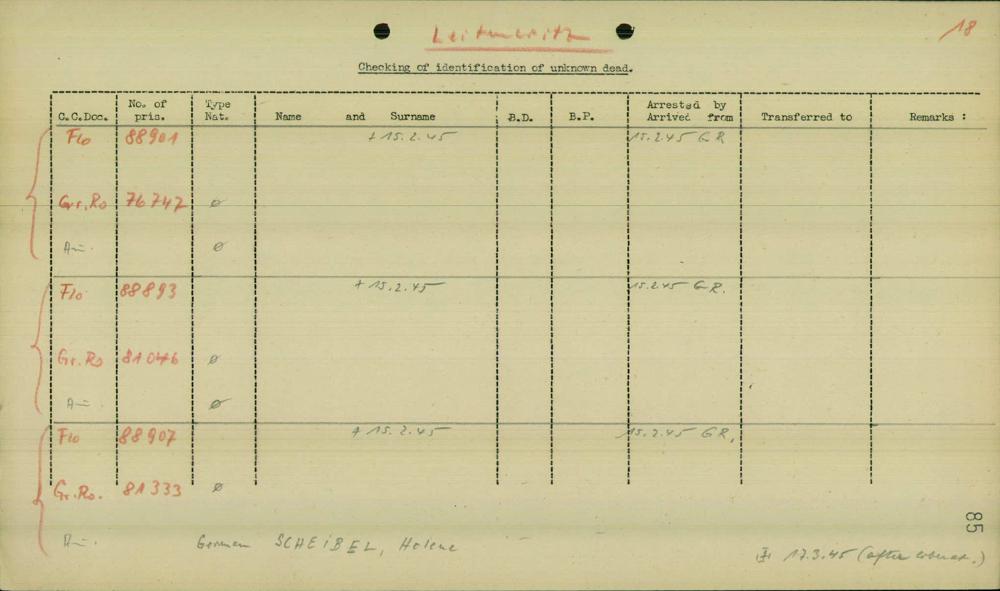 Leitmeritz
18
Checking of identification of unknown dead.
C.C.Doc. No. of pris. Type Nat. Name and Surname B.D. B.P. Arrested by Arrived from Transferred to Remarks :
Flo 88901 + 15.2.45 15.2.45 GR
Gr.Ro 76747 ø
ø
Flo 88893 + 15.2.45 15.2.45 GR.
Gr.Ro 81046 ø
ø
Flo 88907 + 15.2.45 15.2.45 GR.
Gr.Ro. 81333 ø
German SCHEIBEL, Helene
17.3.45 (after
85